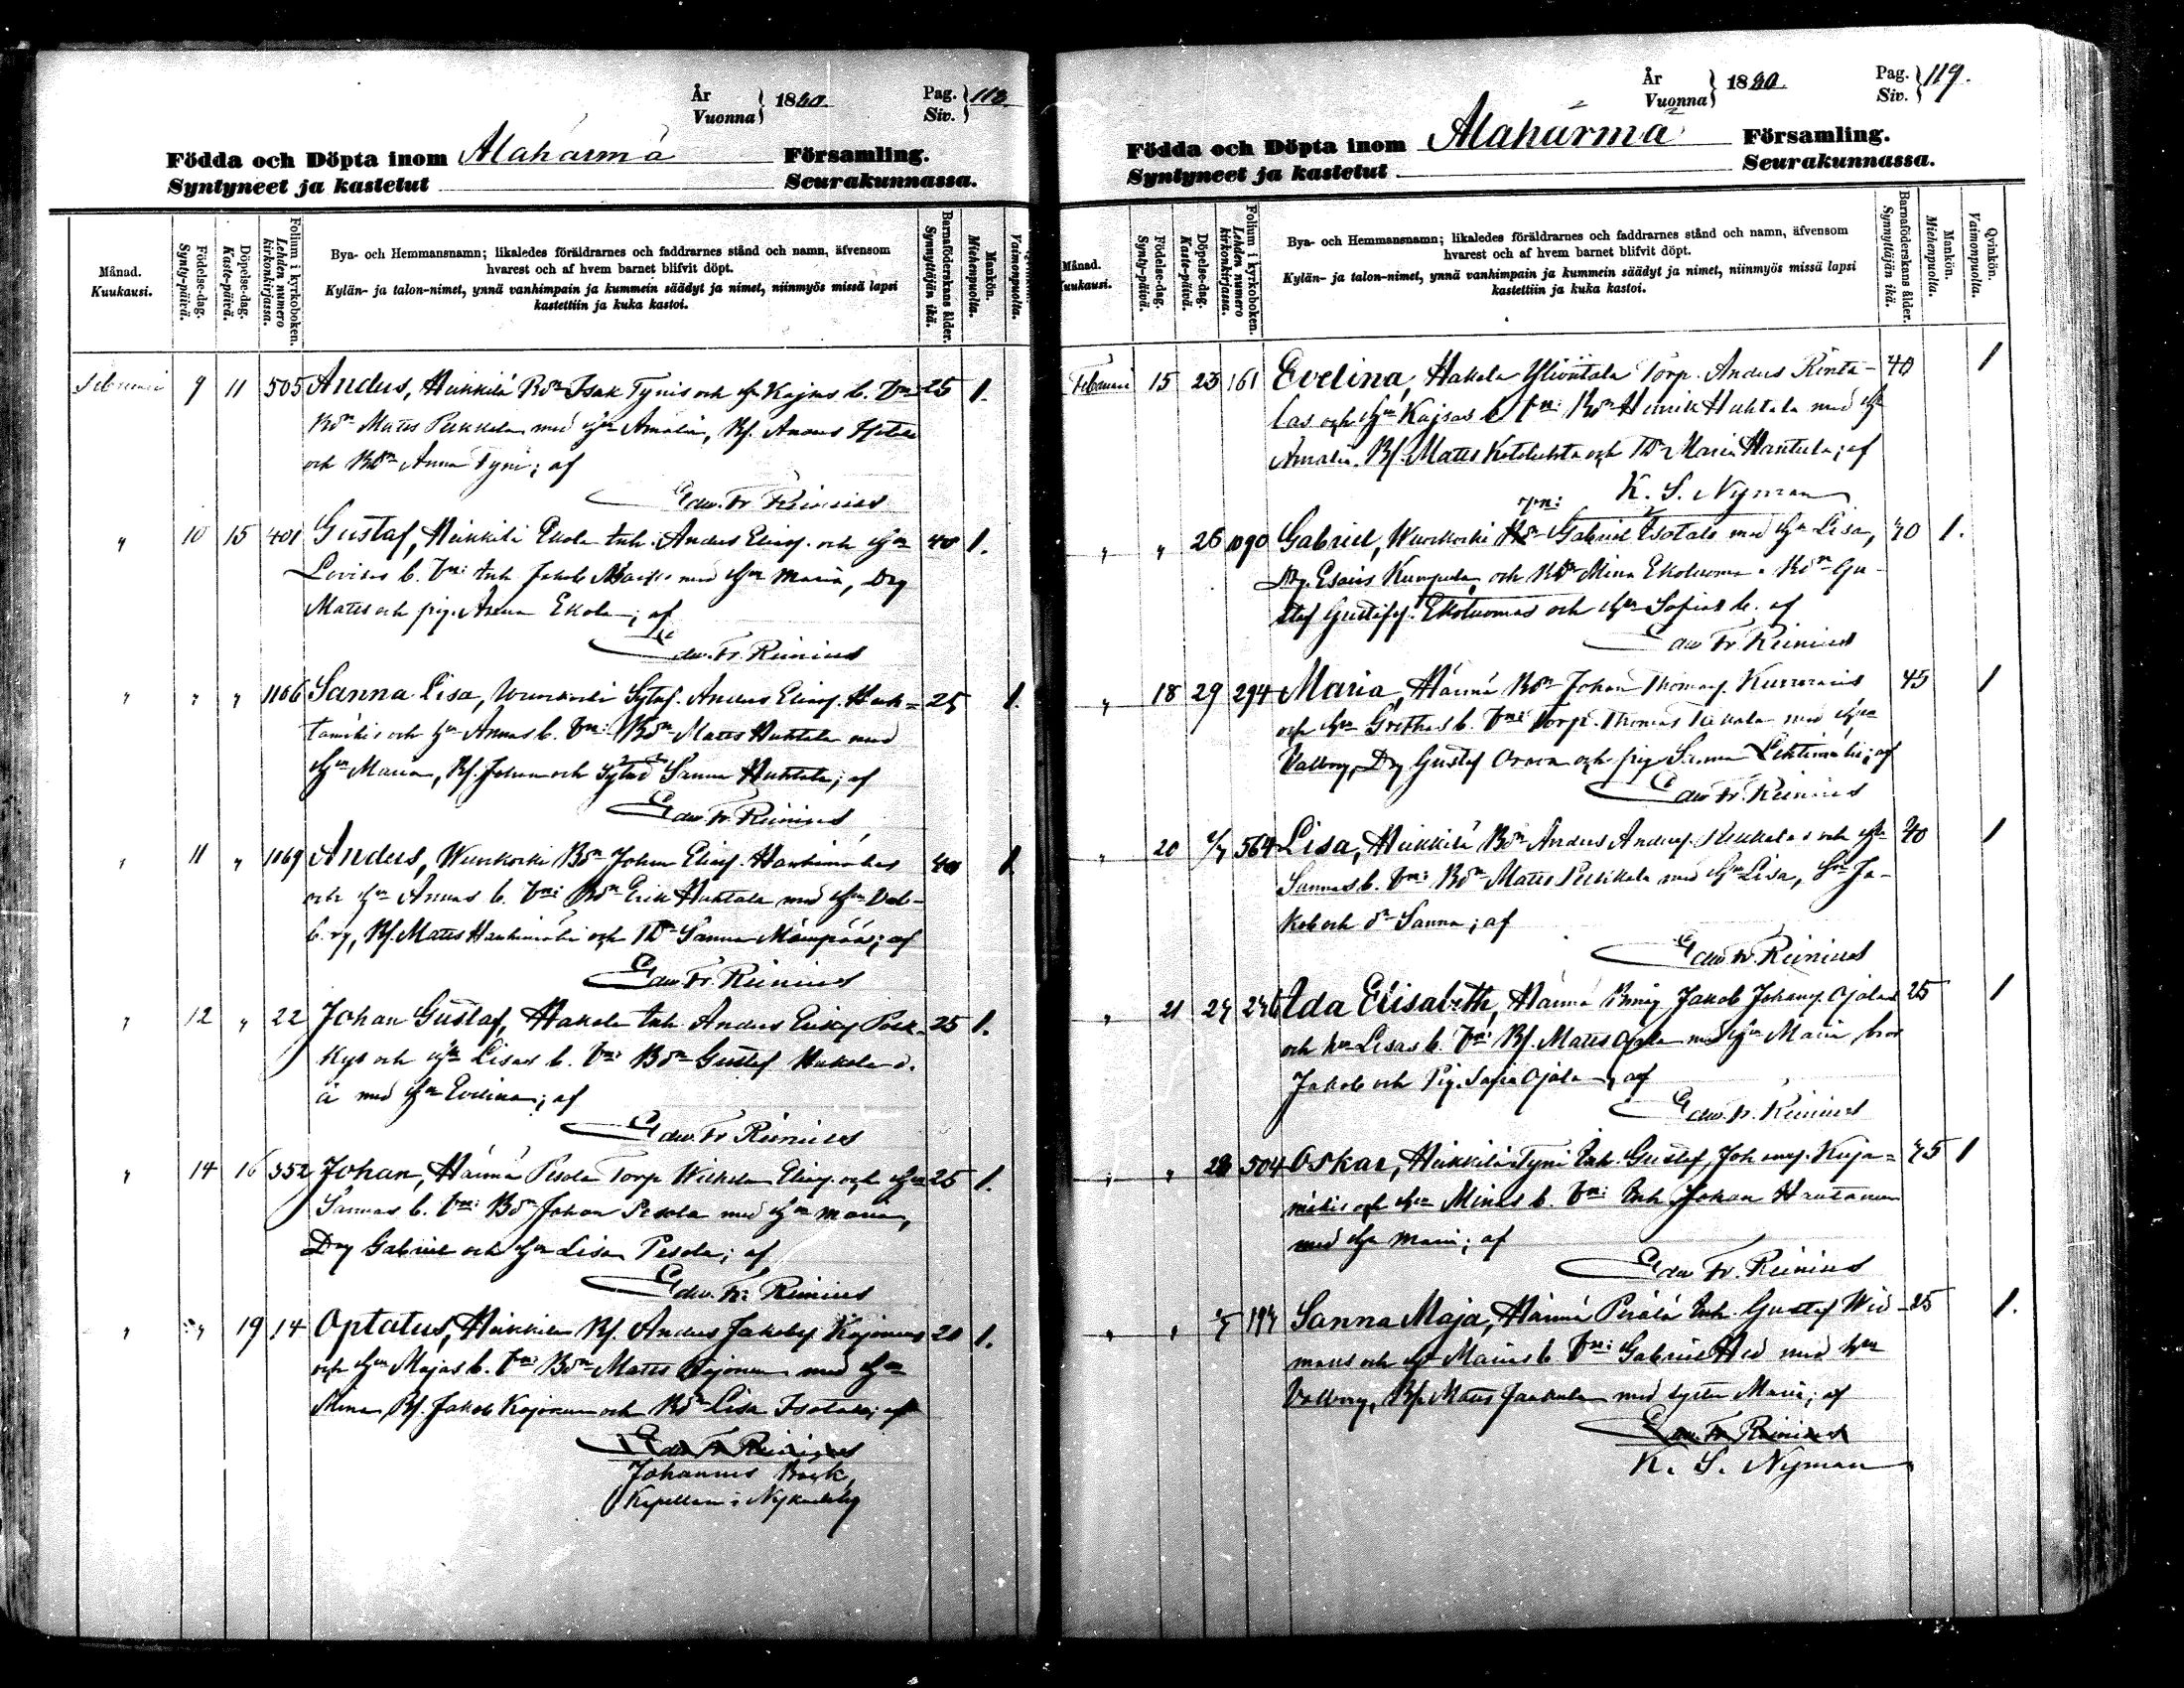 År
Vuonna } 1880. Pag.
Siv. } 118.
Födda och Döpta inom Alahärmä Församling.
Syntyneet ja kastetut Seurakunnassa.
Månad.
Kuukausi.
Födelse-dag.
Synty-päivä.
Döpelse-dag.
Kaste-päivä.
Folium i kyrkoboken.
Lehden numero kirkonkirjassa.
Bya- och Hemmansnamn; likaledes föräldrarnes och faddrarnes stånd och namn, äfvensom
hvarest och af hvem barnet blifvit döpt.
Kylän- ja talon-nimet, ynnä vanhimpain ja kummein säädyt ja nimet, niinmyös missä lapsi
kastettiin ja kuka kastoi.
Barnaföderskans ålder.
Synnyttäjän ikä.
Mankön.
Miehenpuolta.
Vaimonpuolta.
Februari 9 11 505 Anders, Heikkilä Bdn Isak Tynis och Hu Kajsas b. Vn: 25 1.
Bdn Matts Pukkala med Hu Amalia, Bs. Anders
och Bdr Anna Tyni; af
Edw. Fr. Reinius
" 10 15 401 Gustaf, Heikkilä Ekola Inh. Anders Eliass. och Hu 40 1.
Lovisas b. Vn: Inh Jakob med Hu Maria, Drg
Matts och pig. Anna Ekola; af
Edw. Fr. Reinius
" " " 1106 Sanna Lisa, Wuoskoski Sytnf. Anders Eliass. Huh- 25 1.
tamäkis och Hu Annas b. Vn: Bdn Matts Huhtala med
Hu Maria, Bs. Johan och Sanna Huhtala; af
Edw. Fr. Reinius
" 11 " 1069 Anders, Wuoskoski Bdn Johan Eliass. Hankimäkis 40 1.
och Hu Annas b. Vn: Bdn Erik Huhtala med Hu Val-
borg, Bs. Matts Hankimäki och Bdr Sanna Mäenpää; af
Edw. Fr. Reinius
" 12 " 22 Johan Gustaf, Hakola Inh. Anders Erikss. 25 1.
och Hu Lisas b. Vn: Bdn Gustaf Hakola d.
ä med Hu Evelina; af
Edw. Fr. Reinius
" 14 16 352 Johan, Härmä Pesola Torp Wilhelm Eliass. och Hu 25 1.
Sannas b. Vn: Bdn Johan Pesola med Hu Maria,
Drg Gabriel och Hu Lisa Pesola; af
Edw. Fr. Reinius
" " 19 14 Optatus, Heikkilä Bs. Anders Jakobss. Kojonens 20 1.
och Hu Majas b. Vn: Bdn Matts Kojonen med Hu
Mina, Bs. Jakob Kojonen och Bdr Lisa Isotalo; af
Edw. Fr. Reinius
Johannes Bäck,
Kapellan i Nykarleby
År
Vuonna } 1880. Pag.
Siv. } 119.
Födda och Döpta inom Alahärmä Församling.
Syntyneet ja kastetut Seurakunnassa.
Månad.
Kuukausi.
Födelse-dag.
Synty-päivä.
Döpelse-dag.
Kaste-päivä.
Folium i kyrkoboken.
Lehden numero kirkonkirjassa.
Bya- och Hemmansnamn; likaledes föräldrarnes och faddrarnes stånd och namn, äfvensom
hvarest och af hvem barnet blifvit döpt.
Kylän- ja talon-nimet, ynnä vanhimpain ja kummein säädyt ja nimet, niinmyös missä lapsi
kastettiin ja kuka kastoi.
Barnaföderskans ålder.
Synnyttäjän ikä.
Mankön.
Miehenpuolta.
Qvinkön.
Vaimonpuolta.
Februari 15 23 161 Evelina, Hakola Yliöntala Torp. Anders Rinta- 40 1
las och Hu Kajsas b Vn: Bdn Henrik Huhtala med Hu
Amalia. Bs. Matts och Bdr Maria Hantula; af
K. S. Nyman
" " 26 1090 Gabriel, Wuoskoski Gabriel Isotalo med Hu Lisa, 40 1.
Drg. Esaias Kumpula och Bdr Mina Ekoluoma. Bdn Gu-
staf Gustafss. Ekoluomas och Hu Sofias b. af
Edw Fr Reinius
" 18 29 294 Maria, Härmä Bdn Johan Thomass. 45 1
och Hu Grethas b. Vn: Torp. Thomas med Hu
Valborg, Drg Gustaf och pig Sanna Lehtimäki; af
Edw Fr. Reinius
" 20 564 Lisa, Heikkilä Bdn Anders Anderss. Pukkalas och Hu 40 1
Sannas b. Vn: Bdn Matts med Hu Lisa, Sn Ja-
kob och dr Sanna; af
Edw Fr. Reinius
" 21 24 246 Ida Elisabeth, Härmä Jakob Johanss. Ojalas 25 1
och Hu Lisas b. Vn: Bs. Matts Ojala med Hu Maria, bror
Jakob och Pig. Sofia Ojala; af
Edw. Fr. Reinius
" " 504 Oskar, Heikkilä Tyni Inh. Gustaf Johanss. Kuja- 45 1
mäkis och Hu Minas b. Vn: Inh Johan
med Hu Maria; af
Edw Fr. Reinius
" " Sanna Maja, Härmä Perälä Inh. Gustaf Wid- 25 1.
mans och Hu Marias b. Vn: Gabriel Hed med Hu
Valborg, Bs. Matts Jaakola med syster Maria; af
Edw. Fr. Reinius
K. S. Nyman